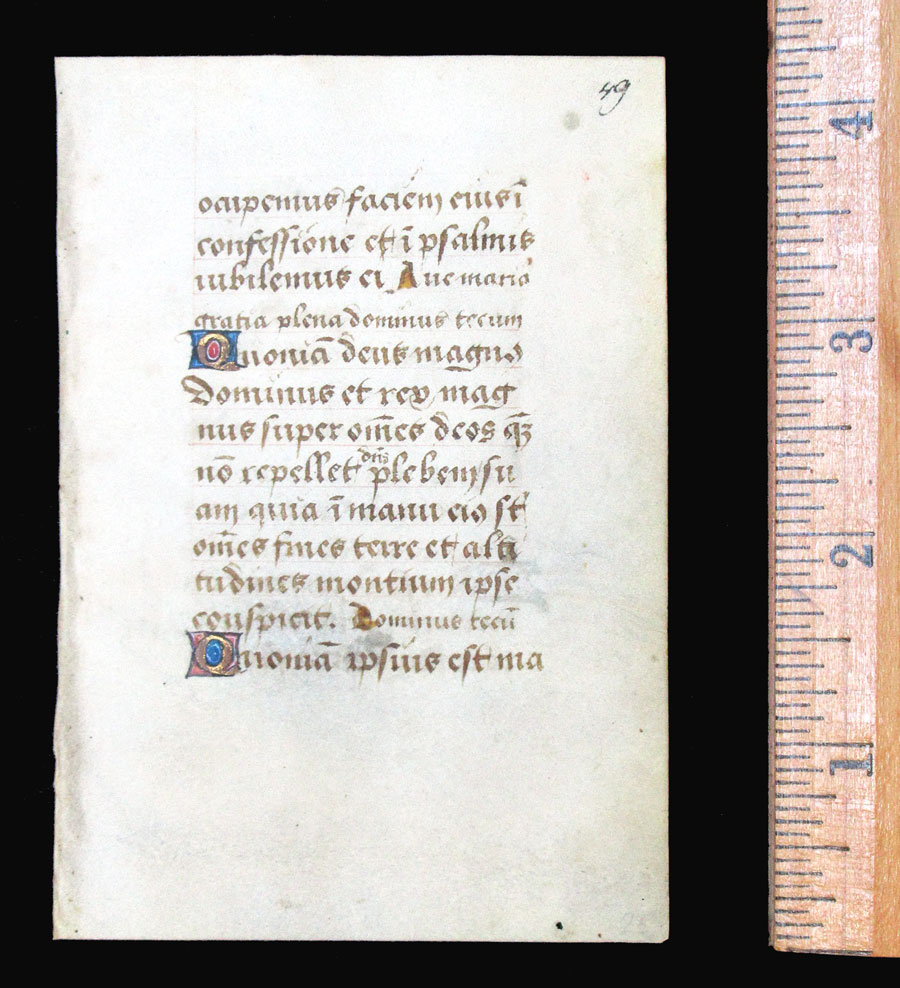 49
ocupemus faciem eius ī
confessione et ī psalmis
iubilemus ei Aue maria
gratia plena dominus tecum
Quoniā deus magnus
dominus et rex mag
nus super om̄es deos qꝫ
nō repellet dn̄s plebem su
am quia ī manu eiꝰ st̄
om̄es fines terre et alti
tudines montium ipse
conspicit. Dominus tecū
Quoniā ipsius est ma
4
3
2
1